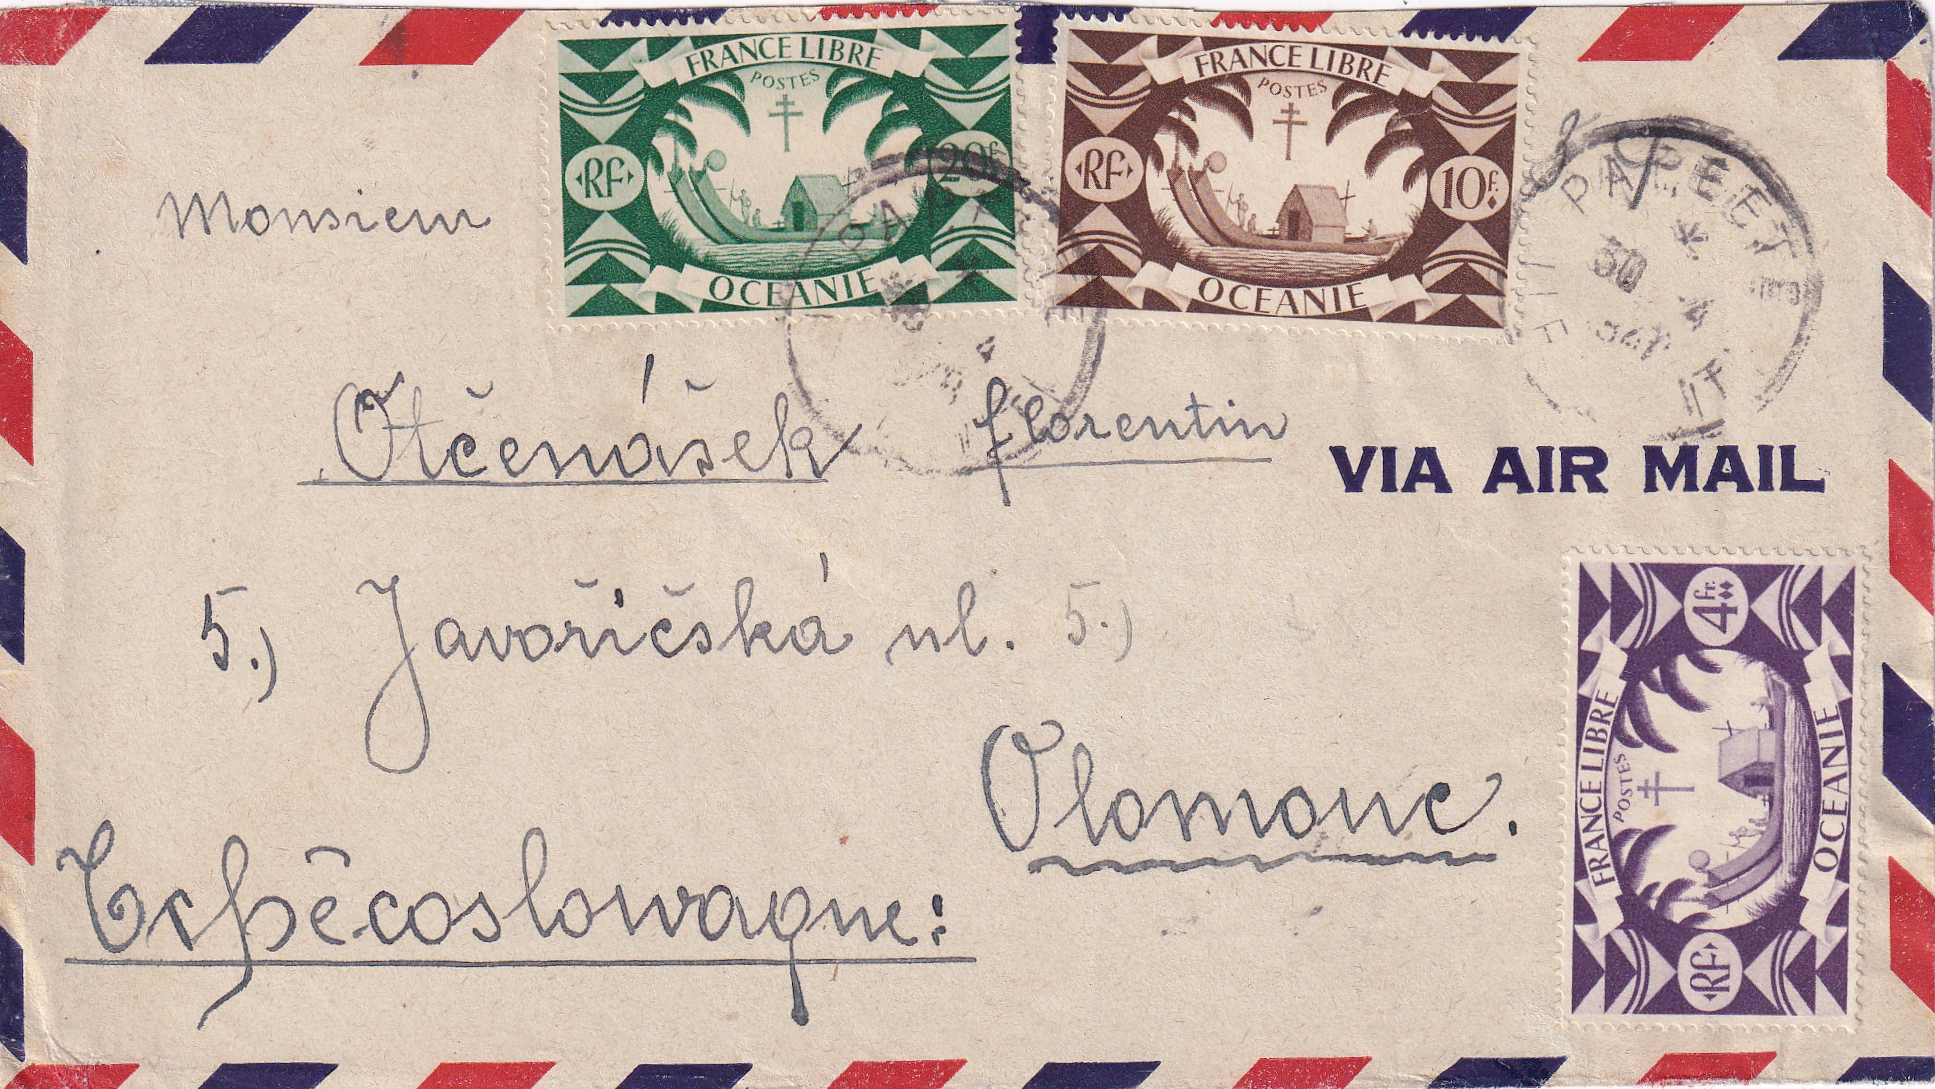 FRANCE LIBRE
POSTES
RF
20f.
OCEANIE
FRANCE LIBRE
POSTES
RF
10f.
OCEANIE
PAPEETE
30 4
PAPEETE
4
Monsieur
Otčenášek florentin
VIA AIR MAIL
5.) Javoříčská ul. 5.)
Olomouc.
Tchècoslowaque:
4Fr.
FRANCE LIBRE
POSTES
OCEANIE
RF